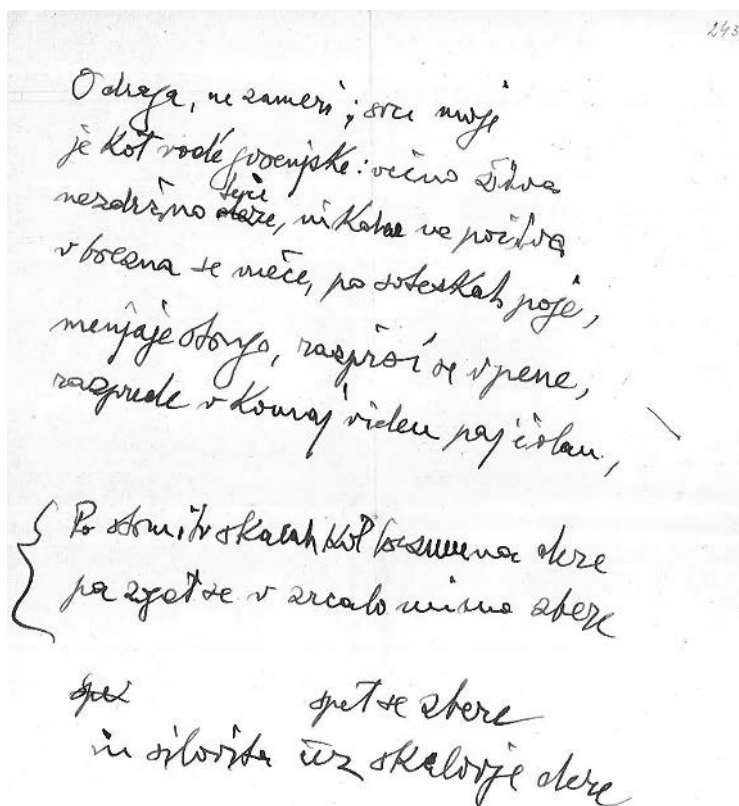 243
O draga, ne zameri; srce moje
je kot vode gorenjske: večno živa
teče
nezdržno dere, nikdar ne počiva
v brezna se meče, po soteskah poje,
menjaje strugo, razprši se v pene,
razprede v komaj viden pajčolan,
Po strmih skalah kot brezumna dere
pa zgol se v zrcalo mirno zbere
spet
spet se zbere
in silovita čez skalovje dere